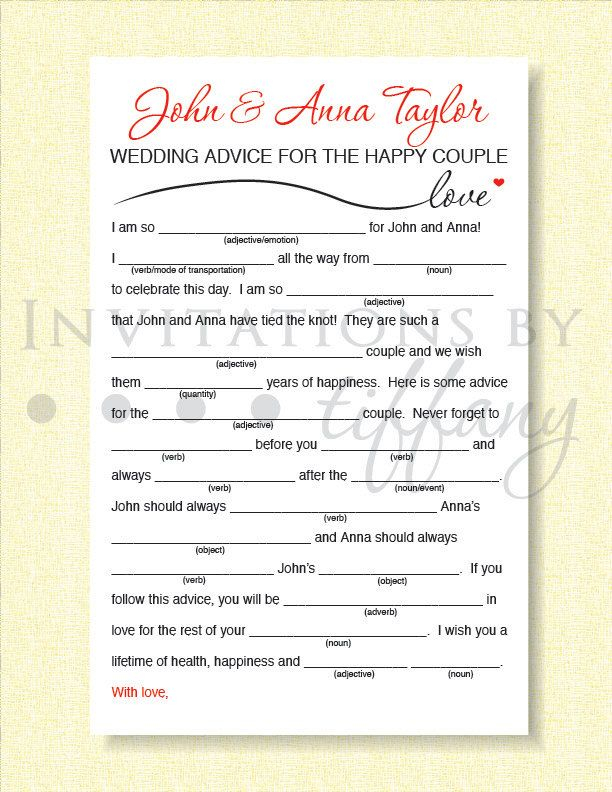 John & Anna Taylor
WEDDING ADVICE FOR THE HAPPY COUPLE
love
I am so ____________________________ for John and Anna!
(adjective/emotion)
I _____________________ all the way from __________________
(verb/mode of transportation) (noun)
to celebrate this day. I am so ____________________________
(adjective)
that John and Anna have tied the knot! They are such a
INVITATIONS BY
__________________________________ couple and we wish
(adjective)
them ________________ years of happiness. Here is some advice
(quantity)
for the ____________________________ couple. Never forget to
(adjective)
tiffany
___________________ before you ____________________ and
(verb) (verb)
always ___________________ after the ____________________.
(verb) (noun/event)
John should always ____________________________ Anna's
(verb)
___________________________ and Anna should always
(object)
______________________ John's ___________________. If you
(verb) (object)
follow this advice, you will be ___________________________ in
(adverb)
love for the rest of your ________________________. I wish you a
(noun)
lifetime of health, happiness and ______________ ____________.
(adjective) (noun)
With love,